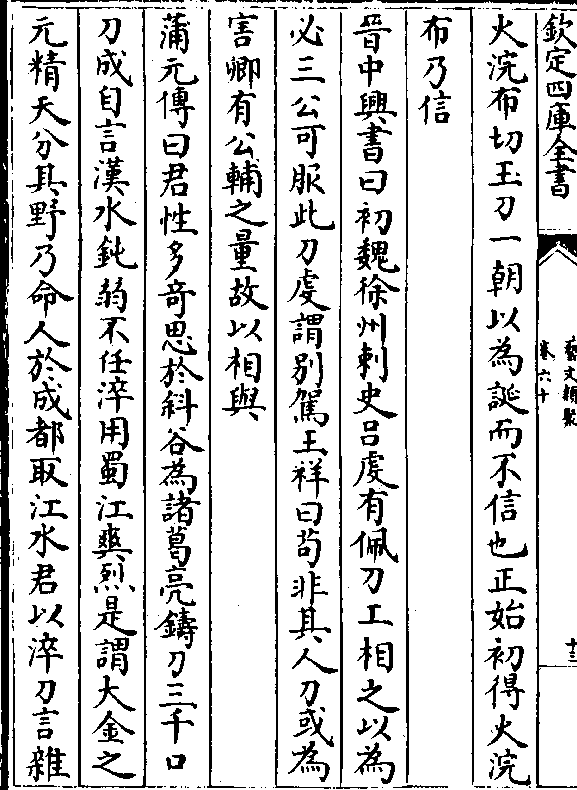 欽定四庫全書
藝文類聚
卷六十
十三
火浣布切玉刀一朝以為誕而不信也正始初得火浣
布乃信
晉中興書曰初魏徐州刺史呂虔有佩刀工相之以為
必三公可服此刀虔謂別駕王祥曰茍非其人刀或為
害卿有公輔之量故以相與
蒲元傳曰君性多奇思於斜谷為諸葛亮鑄刀三千口
刀成自言漢水鈍弱不任淬用蜀江爽烈是謂大金之
元精天分其野乃命人於成都取江水君以淬刀言雜